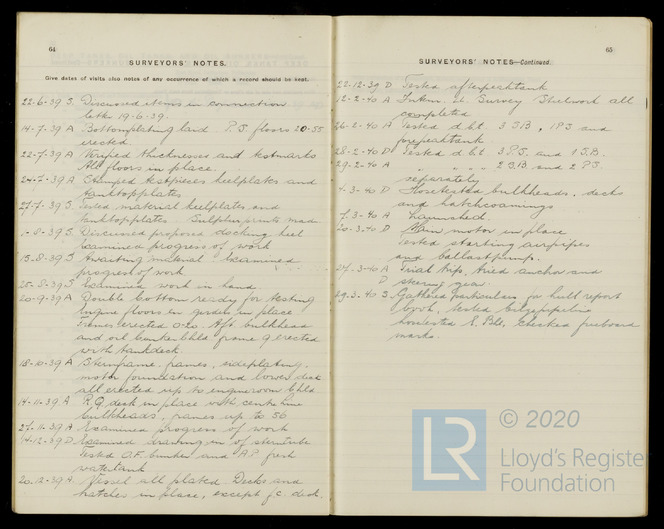 64
SURVEYORS' NOTES.
Give dates of visits also notes of any occurrence of which a record should be kept.
22-6-39 S. Discussed items in connection
letter 19-6-39.
14-7-39 A Bottomplating laid. P.S. floors 20-55
erected.
22-7-39 A Verified thicknesses and testmarks
All floors in place.
24-7-39 A Stamped testpieces keelplates and
tanktopplates
27-7-39 S. Tested material keelplates and
tanktopplates Sulphurprints made
1-8-39 S. Discussed proposed docking keel
Examined progress of work
15-8-39 S Awaiting material Examined
progress of work.
25-8-39 S Examined work in hand.
20-9-39 A Double bottom ready for testing
Engine floors en girders in place
Frames erected 0-20. Aft. bulkhead
and oil bunker bhd frame 9 erected
with tankdeck
18-10-39 A Sternframe, frames, sideplating,
motor foundation and lower deck
all erected up to engineroom bhd
14-11-39 A R.Q. deck in place with centreline
bulkheads, frames up to 56
27-11-39 A Examined progress of work
14-12-39 D Examined of sterntube
Tested O.F. bunker and A.P. fresh
watertank
20-12-39 A Vessel all plated Decks and
hatches in place, except f.c. deck.
65
SURVEYORS' NOTES—Continued.
22-12-39 D Tested afterpeaktank
12-2-40 A Survey Steelwork all
completed
26-2-40 A Tested d.bt. 3 S.B, 1 P.S and
forepeaktank
28-2-40 D Tested d.bt 3 P.S. and 1 S.B.
29-2-40 A " " " 2 S.B and 2 P.S.
separately
4-3-40 D Hosetested bulkheads, decks
and hatchcoamings
7-3-40 A launched.
20-3-40 D Main motor in place
Tested starting airpipes
and ballastpump.
27-3-40 A Trial trip, tried anchor and
D steering gear.
29-3-40 S Gathered particulars for hull report
book, tested bilgepipeline
checked freeboard
marks.
© 2020
LR
Lloyd's Register
Foundation